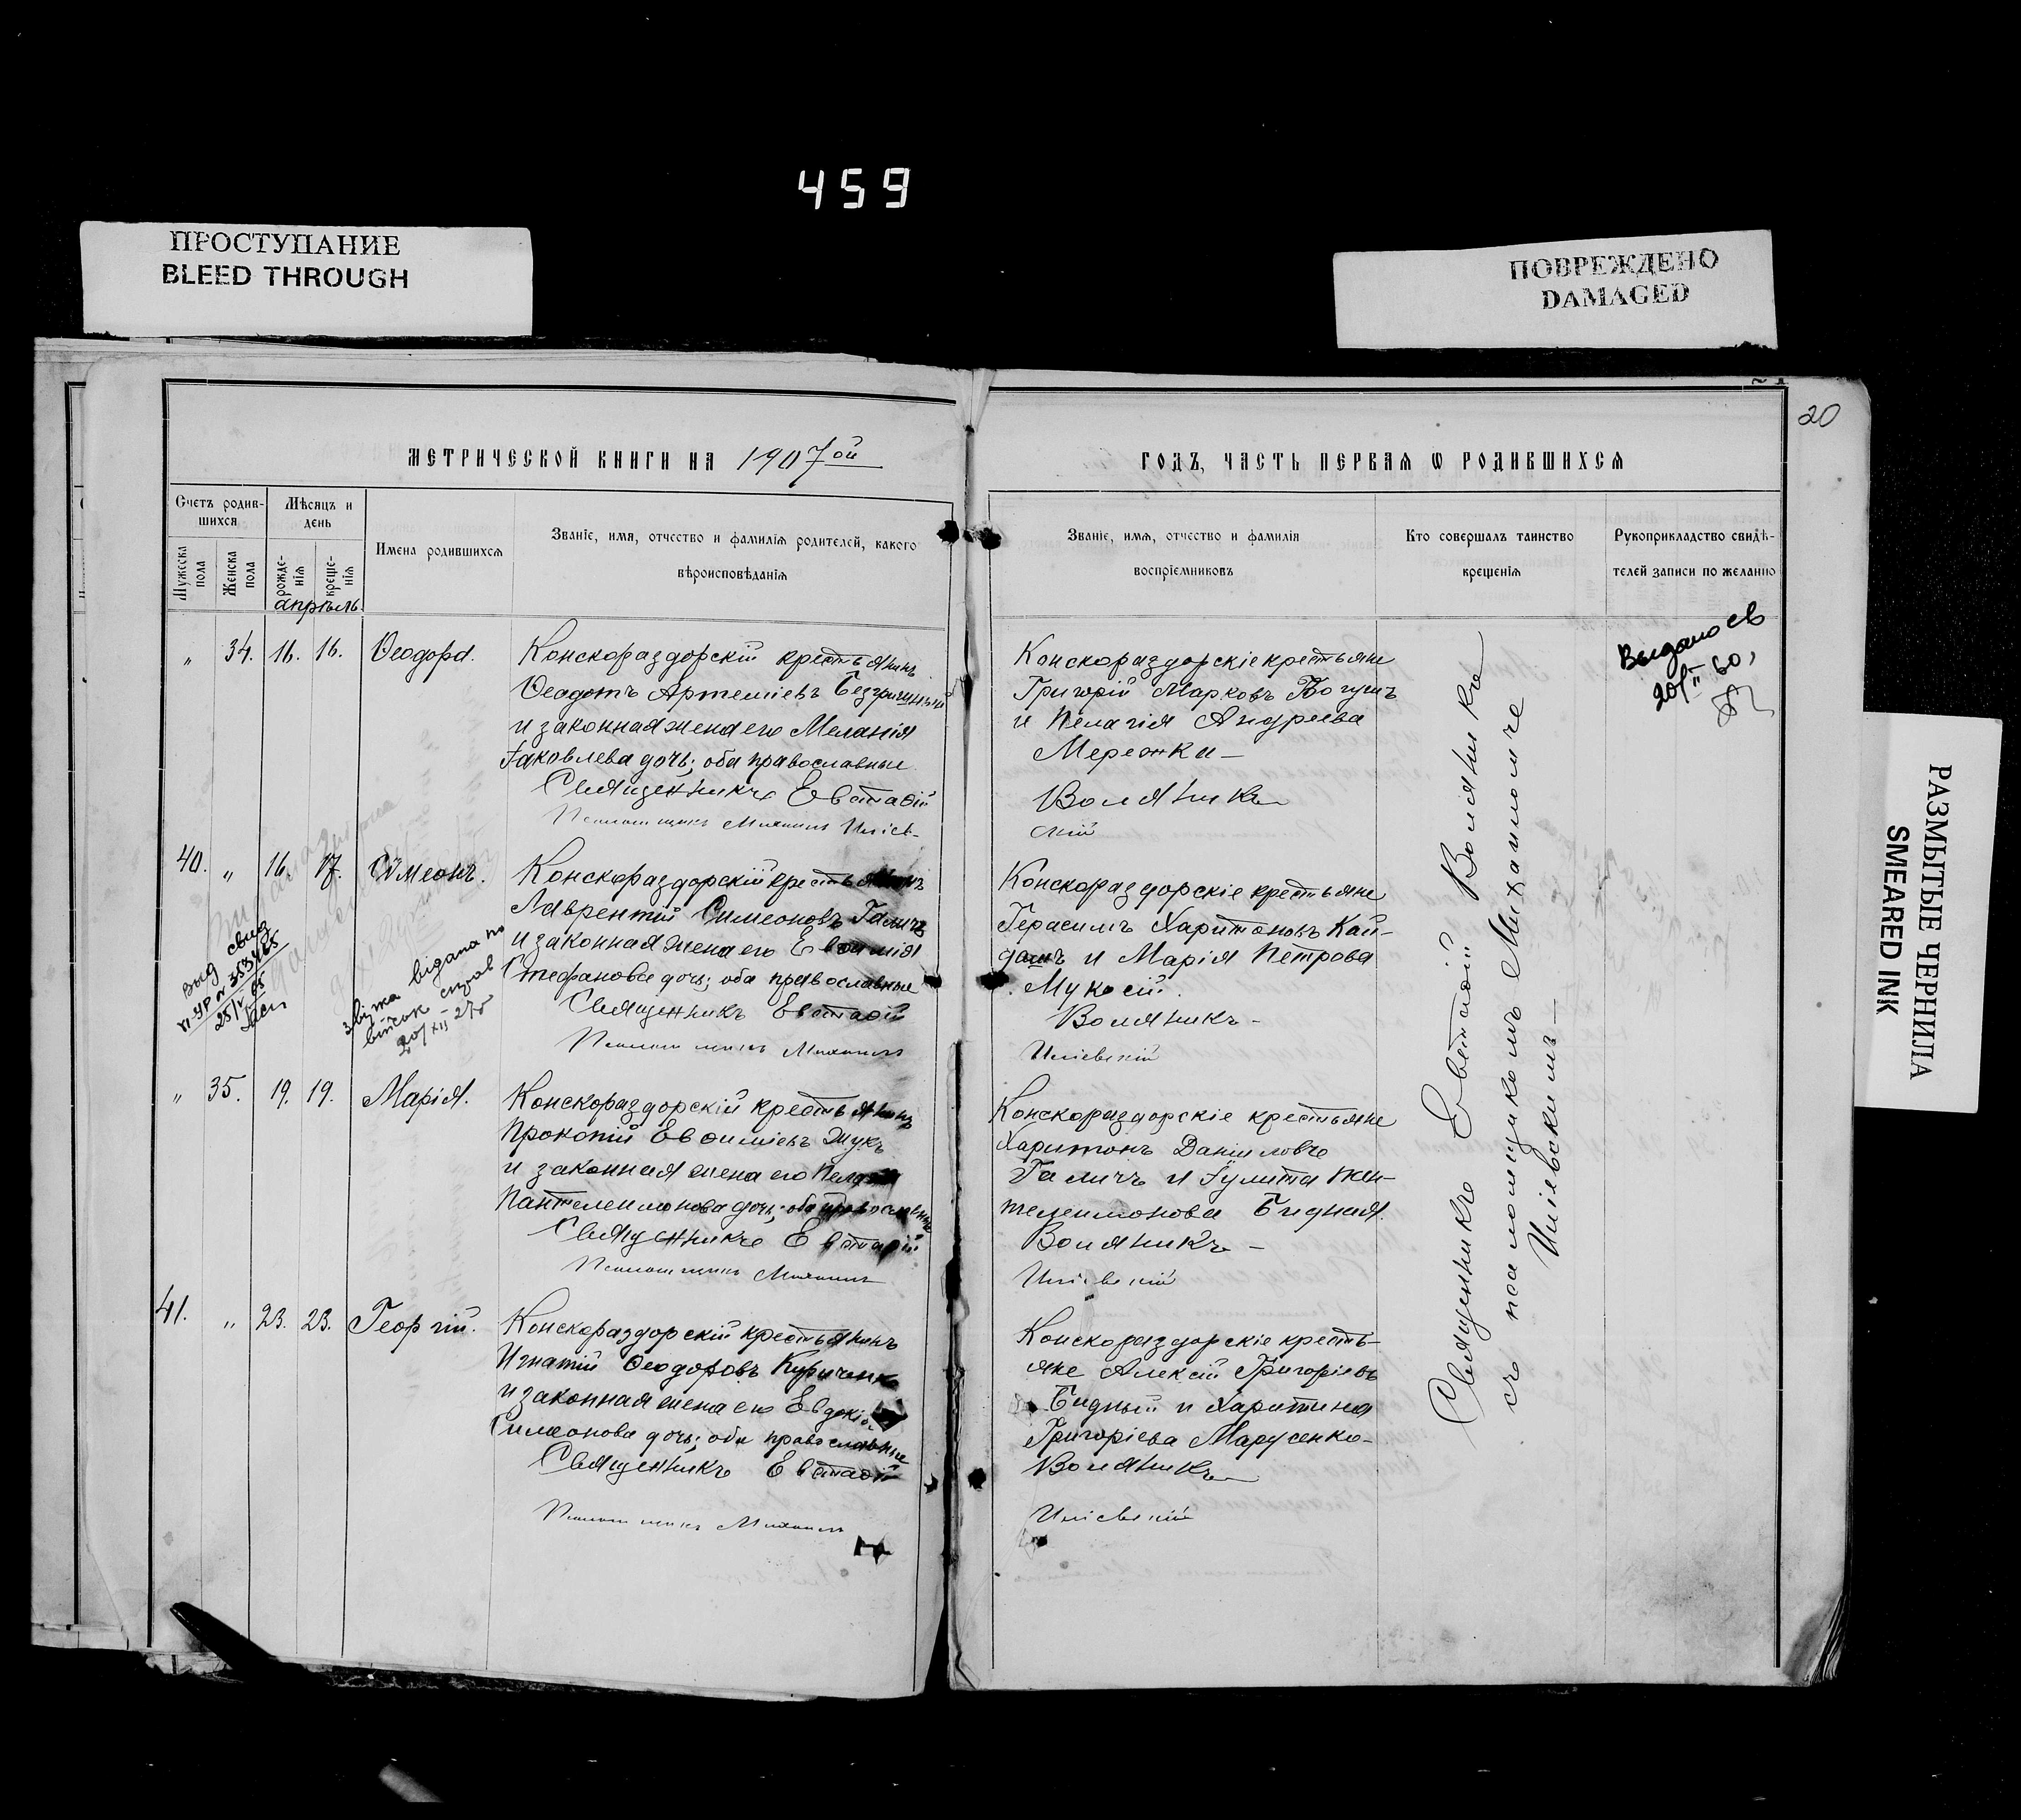 459
ПРОСТУПАНИЕ
BLEED THROUGH
ПОВРЕЖДЕНО
DAMAGED
РАЗМЫТЫЕ ЧЕРНИЛА
SMEARED INK
20
МЕТРИЧЕСКОЙ КНИГИ НА 1907ой
ГОДЪ, ЧАСТЬ ПЕРВАЯ Ѡ РОДИВШИХСЯ
Счетъ родив-
шихся
Мужеска пола
Женска пола
Мѣсяцъ и
день
рожде-
нія
креще-
нія
Имена родившихся
Званіе, имя, отчество и фамилія родителей, какого
вѣроисповѣданія
Званіе, имя, отчество и фамилія
воспріемниковъ
Кто совершалъ таинство
крещенія
Рукоприкладство свидѣ-
телей записи по желанію
апрѣль
„ 34. 16. 16. Ѳеодора.
Конскораздорскій крестьянинъ
Ѳеодотъ Артеміевъ
и законная жена его Меланія
Іаковлева дочь; оба православные
Священникъ Евстаѳій
Псаломщикъ Михаилъ Иліев-
Конскораздорскіе крестьяне
Григорій Марковъ Богушъ
и Пелагія Андреева
Мережки —
Воляникъ
скій
Выдано св
20/II 60,
40. „ 16. 17. Сѵмеонъ.
Конскораздорскій крестьянинъ
Лаврентій Симеоновъ Галичъ
и законная жена его Евѳимія
Стефанова дочь; оба православные
Священникъ Евстаѳій
Псаломщикъ Михаилъ
Конскораздорскіе крестьяне
Герасимъ Харитоновъ Кай-
дашъ и Марія Петрова
Мукосій.
Воляникъ —
Иліевскій
Выд свид
353465
25/V 65
витка видана по
війсок. справ
20/XII - 27
„ 35. 19. 19. Марія.
Конскораздорскій крестьянинъ
Прокопій Евѳиміевъ Жукъ
и законная жена его
Пантелеимонова дочь; оба православные
Священникъ Евстаѳій
Псаломщикъ Михаилъ
Конскораздорскіе крестьяне
Харитонъ Даніиловъ
Галичъ и Іулита Пан-
телеимонова Бидная.
Воляникъ —
Иліевскій
41. „ 23. 23. Георгій.
Конскораздорскій крестьянинъ
Игнатій Ѳеодоровъ Куриченко
и законная жена его Евдокія
Симеонова дочь; оба православные
Священникъ Евстаѳій
Псаломщикъ Михаилъ
Конскораздорскіе кресть-
яне Алексій Григоріевъ
Бидный и Харитина
Григоріева Марусенко —
Воляникъ
Иліевскій
Священникъ Евстаѳій Воляникъ
съ псаломщикомъ Михаиломъ
Иліевскимъ —